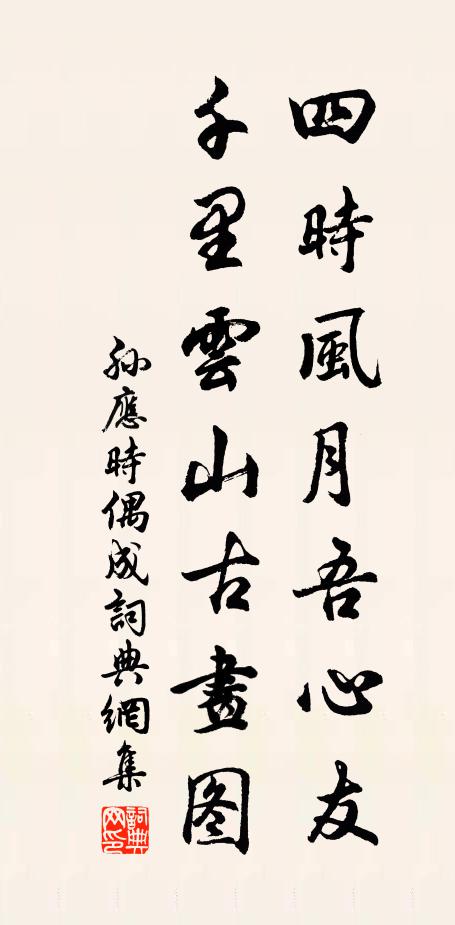 四時風月吾心友
千里雲山古畫图
孫應時偶成詞典網集
詞典网印